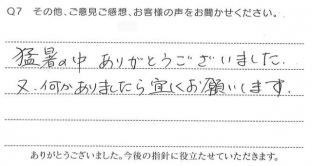 Q7 その他、ご意見ご感想、お客様の声をお聞かせください。
猛暑の中 ありがとうございました.
又、何かありましたら宜しくお願いします.
ありがとうございました。今後の指針に役立たせていただきます。